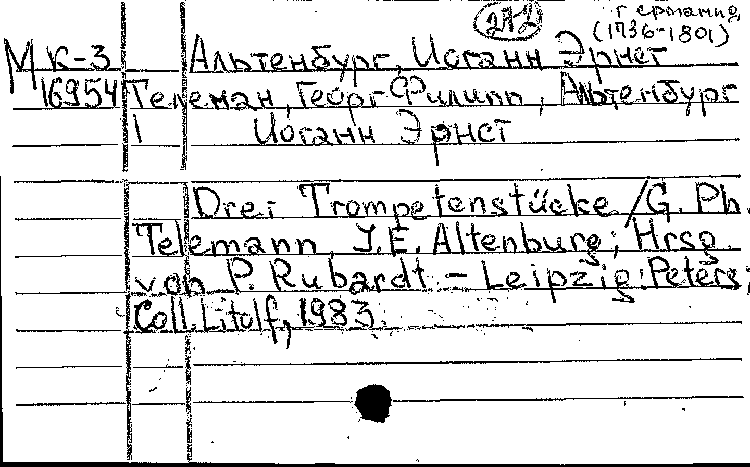 272 Германия
(1736-1801)
МК-3 Альтенбург, Иоганн Эрнст
16954 Телеман, Георг Филипп, Альтенбург
1 Иоганн Эрнст
Drei Trompetenstücke / G. Ph.
Telemann, J. E. Altenburg; Hrsg.
von P. Rubardt. – Leipzig: Peters;
Coll. Litolf, 1983.